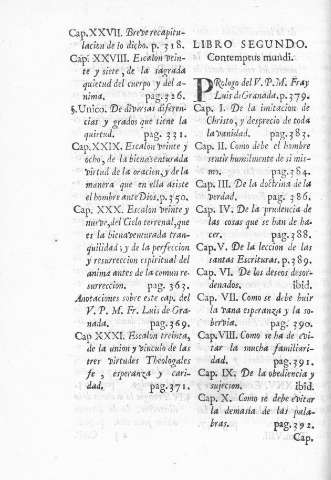 Cap. XXVII. Breve recapitu-
lacion de lo dicho. p. 318.
Cap. XXVIII. Escalon vein-
te y siete, de la sagrada
quietud del cuerpo y del a-
nima. pag. 326.
§. Unico. De diversas diferen-
cias y grados que tiene la
quietud. pag. 331.
Cap. XXIX. Escalon veinte y
ocho, de la bienaventurada
virtud de la oracion, y de la
manera que en ella asiste
el hombre ante Dios. p. 350.
Cap. XXX. Escalon veinte y
nueve, del Cielo terrenal, que
es la bienaventurada tran-
quilidad, y de la perfeccion
y resurreccion espiritual del
anima antes de la comun re-
surreccion. pag. 363.
Anotaciones sobre este cap. del
V. P. M. Fr. Luis de Gra-
nada. pag. 369.
Cap XXXI. Escalon treinta,
de la union y vinculo de las
tres virtudes Theologales
fe, esperanza y cari-
dad. pag. 371.
LIBRO SEGUNDO.
Contemptus mundi.
PRologo del V. P. M. Fray
Luis de Granada. p. 379.
Cap. I. De la imitacion de
Christo, y desprecio de toda
la vanidad. pag. 383.
Cap. II. Como debe el hombre
sentir humilmente de si mis-
mo. pag. 384.
Cap. III. De la doctrina de la
verdad. pag. 386.
Cap. IV. De la prudencia de
las cosas que se han de ha-
cer. pag. 388.
Cap. V. De la leccion de las
santas Escrituras. p. 389.
Cap. VI. De los deseos desor-
denados. ibid.
Cap. VII. Como se debe huir
la vana esperanza y la so-
bervia. pag. 390.
Cap. VIII. Como se ha de evi-
tar la mucha familiari-
dad. pag. 391.
Cap. IX. De la obediencia y
sujecion. ibid.
Cap. X. Como se debe evitar
la demasia de las pala-
bras. pag. 392.
Cap.